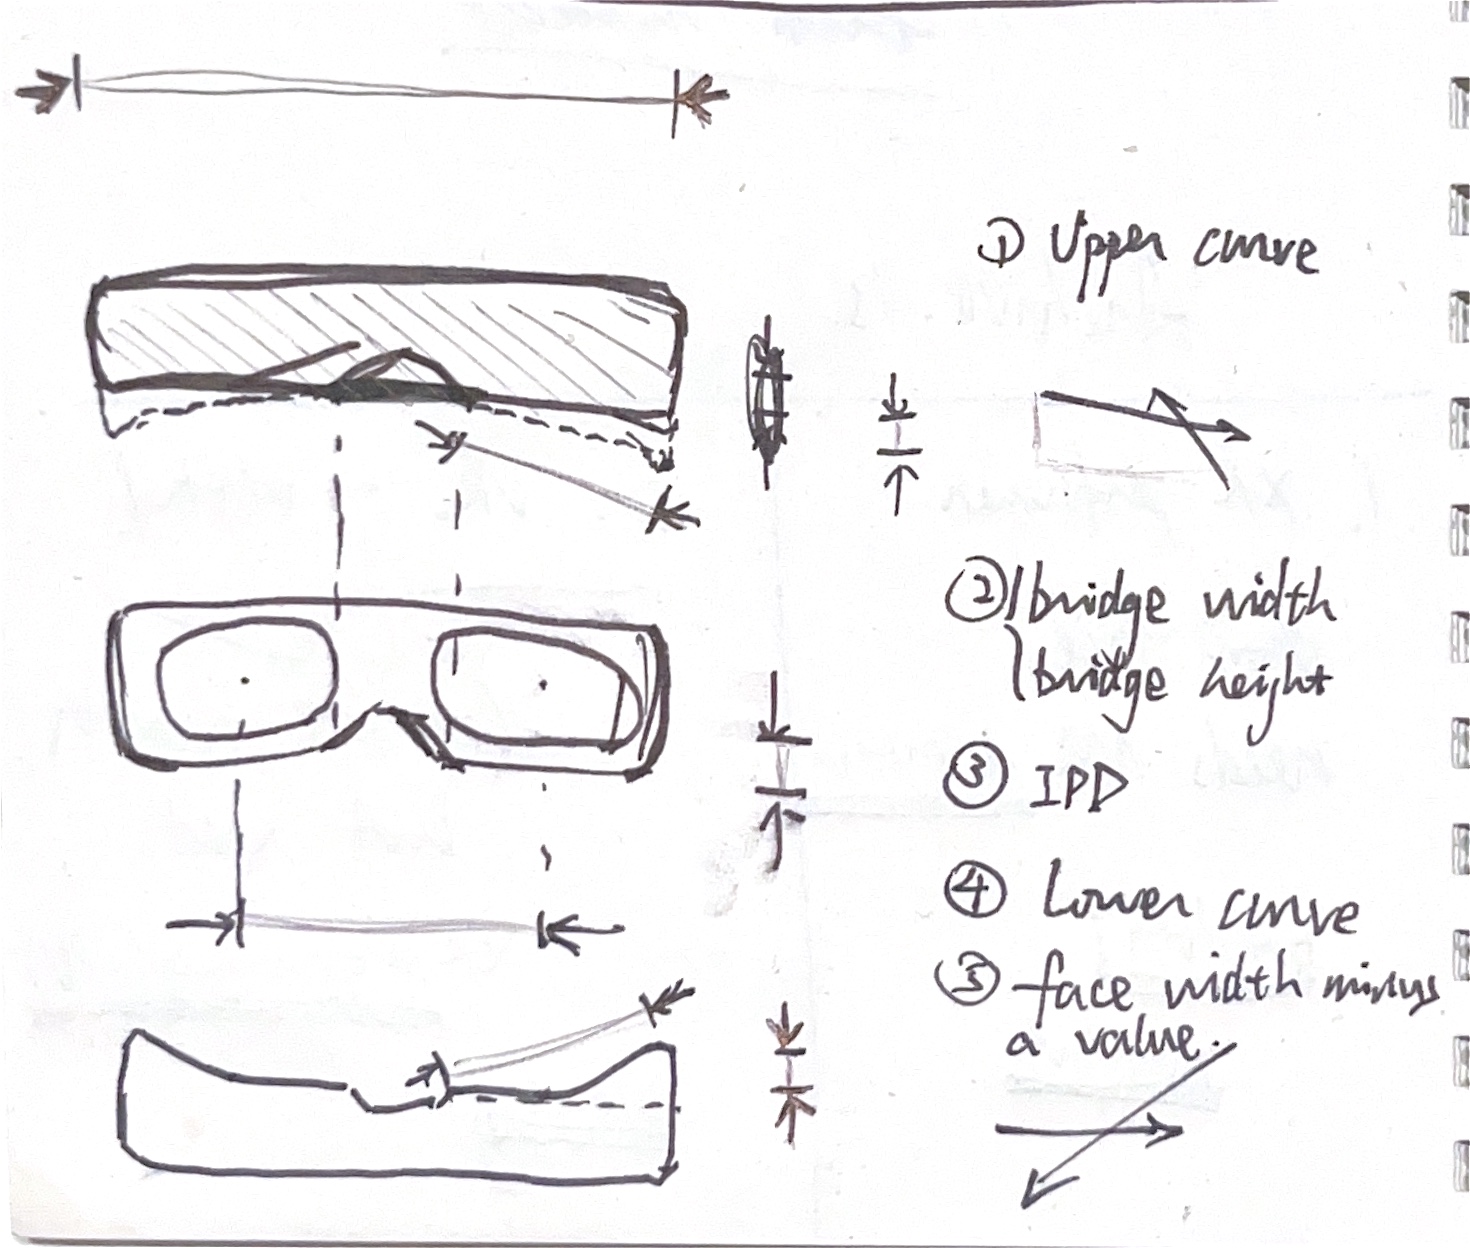 ① Upper curve
② bridge width
bridge height
③ IPD
④ Lower curve
⑤ face width minus
a value.